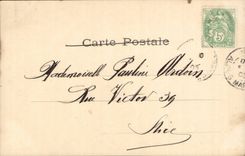 Carte Postale
Mademoiselle Pauline
Rue Victor 39
Nice
5